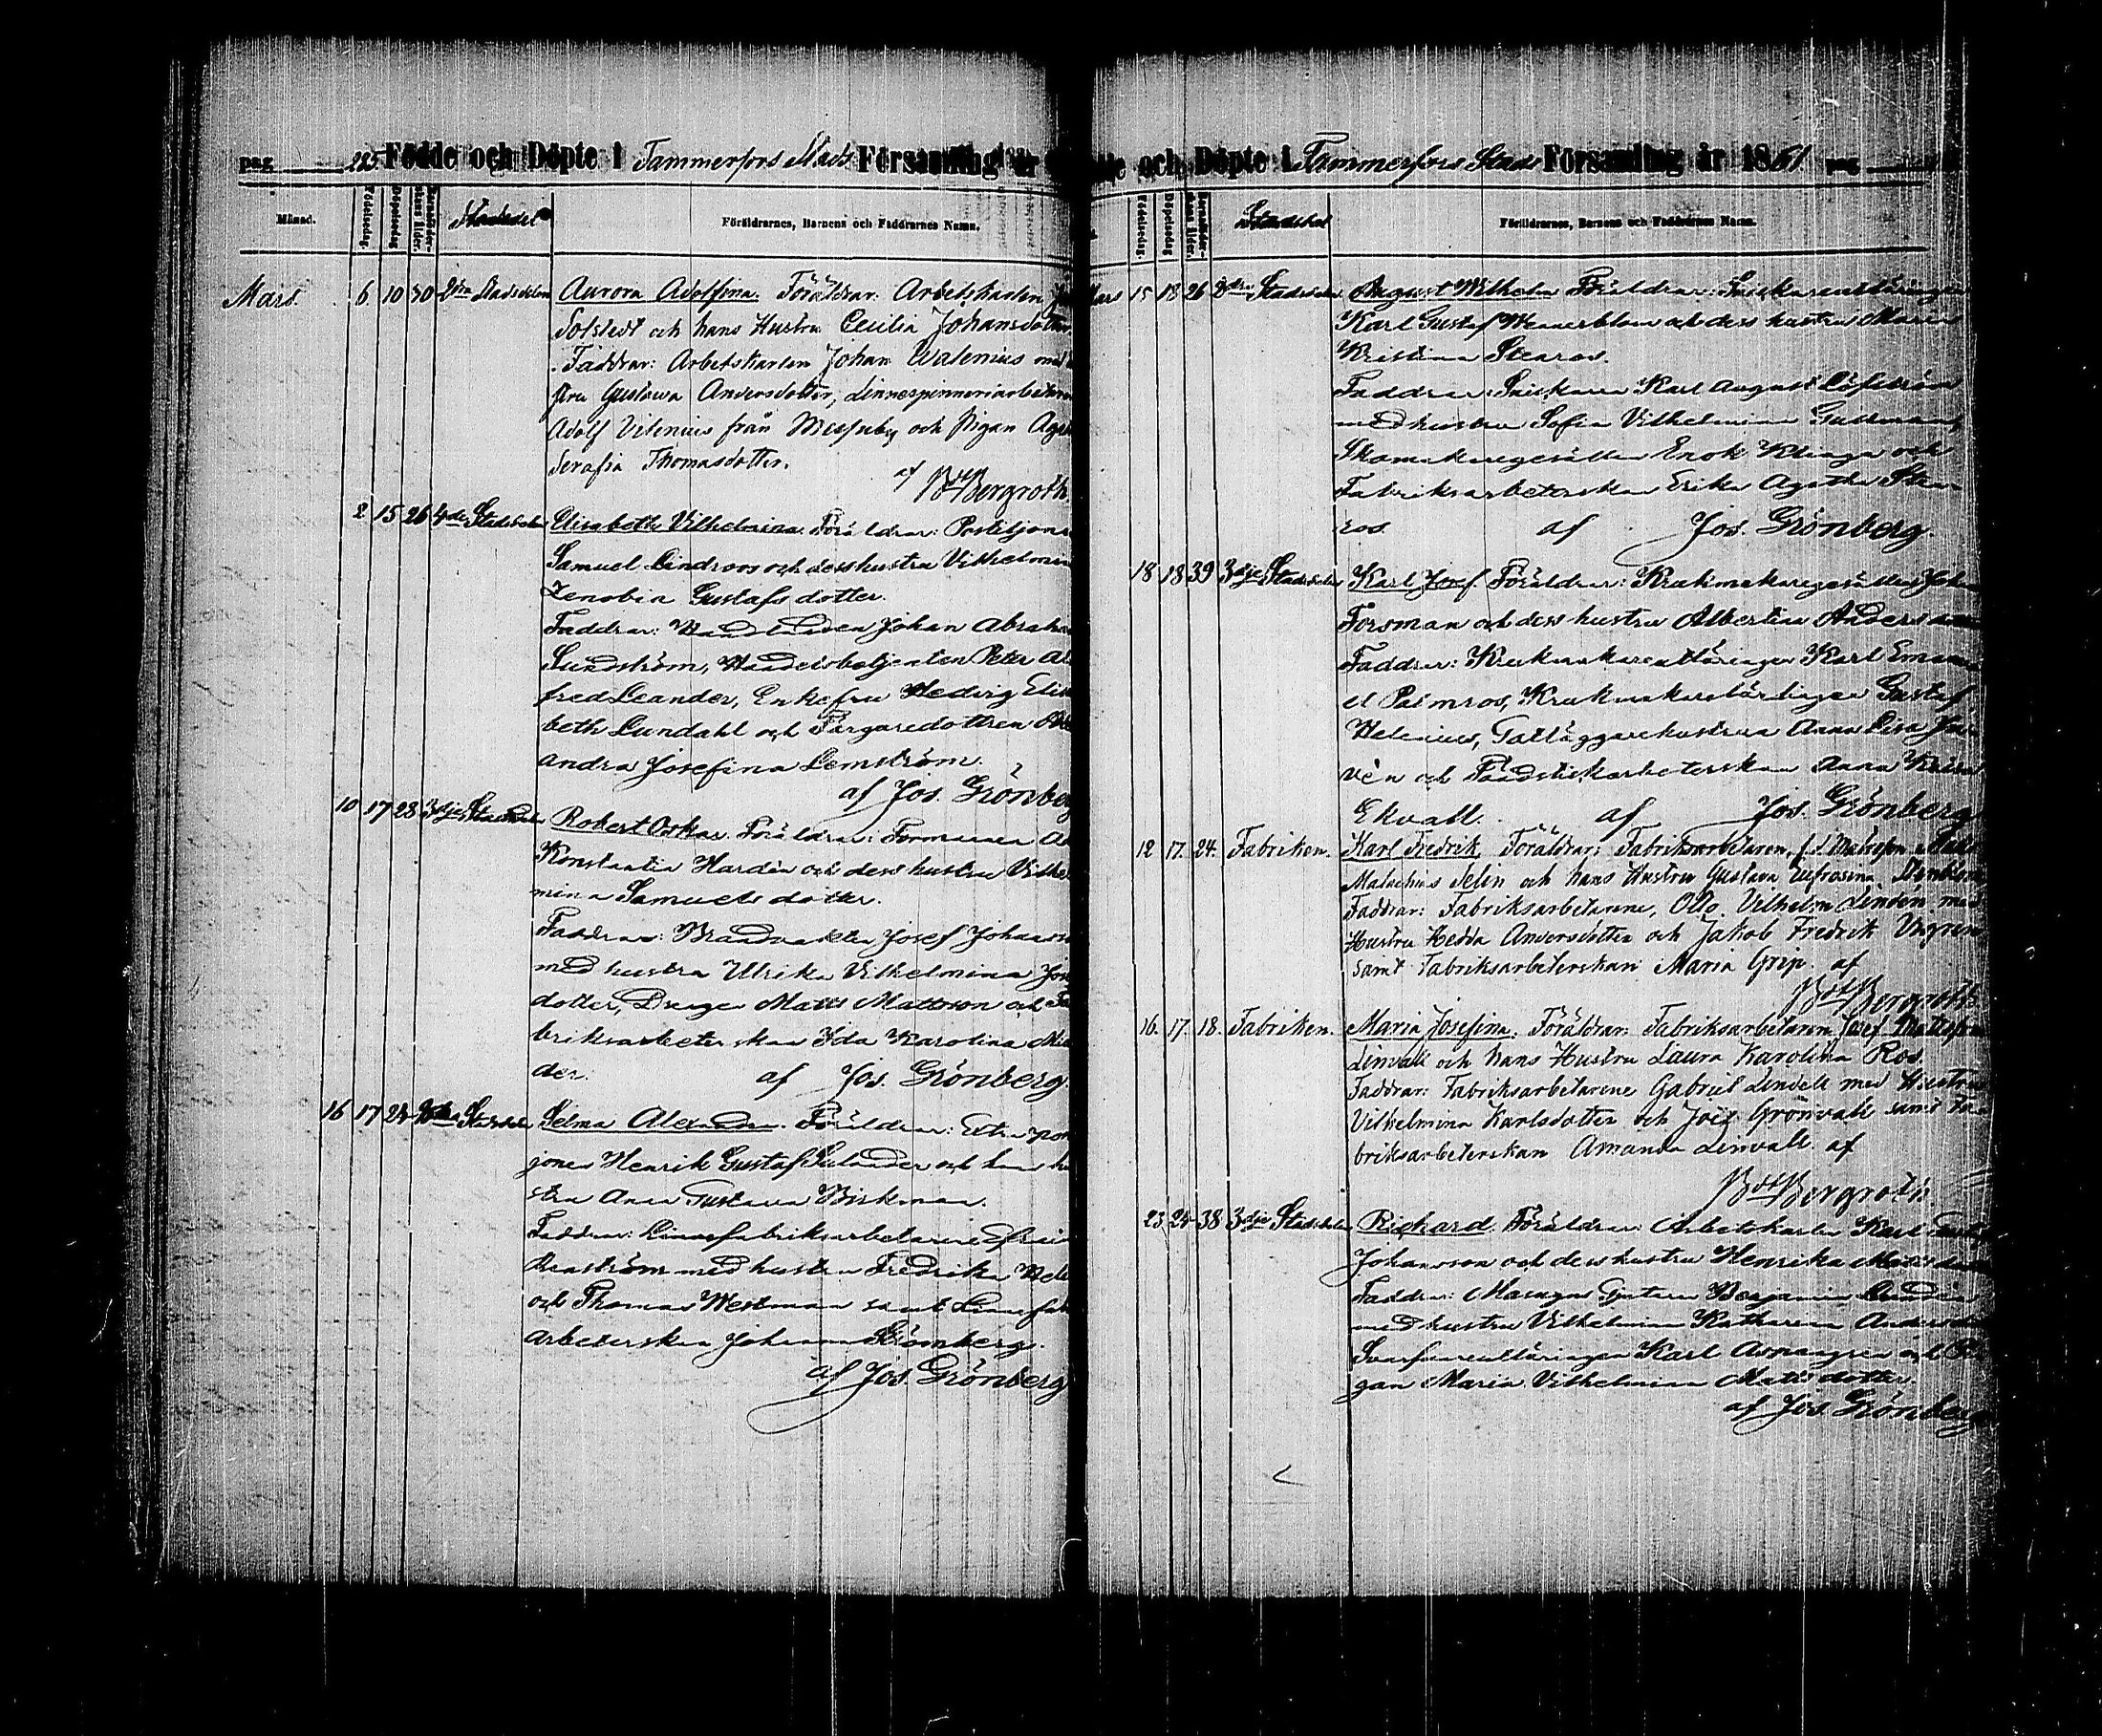 pag 225 Födde och Döpte i Tammerfors Stads Församling år
Månad. Födelsedag. Döpelsedag Barnaföderskans ålder. Stadsdel Föräldrarnes, Barnens och Faddrarnes Namn.
Mars. 6 10 30 2dra Stadsdelen Aurora Adolfina. Föräldrar: Arbetskarlen
Solstedt och hans Hustru Cecilia Johansdotter,
Faddrar: Arbetskarlen Johan Walenius med
stru Gustawa Andersdotter, Linnespinneriarbetaren
Adolf Vilenius från Messuby och Pigan
Serafia Thomasdotter.
af Bdt Bergroth
2 15 26 4de Stadsdelen Elisabeth Vilhelmina. Föräldrar: Postiljonen
Samuel Lindroos och dess hustru Vilhelmin
Zenobia Gustafsdotter.
Faddrar: Handlanden Johan Abraham
Sundström, Handelsbetjenten Peter Al
fred Leander, Enkefru Hedvig Elisa
beth Lundahl och Färgaredottren
andra Josefina Lemström.
af Jos. Grönberg
10 17 28 3dje Stadsdelen Robert Oskar. Föräldrar: Formaren
Konstantin Hardén och dess hustru Vilhel
mina Samuelsdotter.
Faddrar: Brandvakten Josef Johansson
med hustru Ulrika Vilhelmina
dotter, Drengen Matts Mattsson och Fa
briksarbeterskan Ida Karolina
der. af Jos. Grönberg.
16 17 24 Stadsdelen Selma Alexandra. Föräldrar: Extra
jonen Henrik Gustaf Selander och hans hu
stru Anna Gustava Birkman.
Faddrar: Linnefabriksarbetarene
Renström med hustru Fredrika
och Thomas Westman samt Linnefab
arbeterskan Johanna Strömberg.
af Jos. Grönberg
och Döpte i Tammerfors Stads Församling år 1861. pag
Födelsedag. Döpelsedag Barnaföderskans ålder. Stadsdel Föräldrarnes, Barnens och Faddrarnes Namn.
Mars 15 18 26 2dra Stadsdelen August Wilhelm Föräldrar:
Karl Gustaf Wennerblom och dess hustru Maria
Kristina Stenros.
Faddrar: Snickaren Karl August Löfström
med hustru Sofia Vilhelmina
Skomakaregesällen Enok Klinga och
Fabriksarbeterskan Erika Agatha Sten
ros. af Jos. Grönberg.
18 18 39 3dje Stadsdelen Karl Josef Föräldrar: Krukmakaregesällen
Forsman och dess hustru Albertina Andersdotter
Faddrar: Krukmakarelärlingen Karl Emanu
el Palmros, Krukmakarelärlingen Gustaf
Helenius, Tattäggarehustrun Anna Lisa
vén och Anna
Ekvall. af Jos. Grönberg
12 17. 24. Fabriken. Karl Fredrik. Föräldrar: Fabriksarbetaren,
Malachias Selin och hans Hustru Gustava Eufrosina
Faddrar: Fabriksarbetarene, Otto Vilhelm Lindén med
Hustru Hedda Andersdotter och Jakob Fredrik
samt Fabriksarbeterskan Maria Grip. af
Bdt Bergroth
16. 17. 18. Fabriken. Maria Josefina. Föräldrar: Fabriksarbetaren Josef Mattsson
Linvall och hans Hustru Laura Karolina Ros.
Faddrar: Fabriksarbetarene Gabriel Lindell med Hustru
Vilhelmina Karlsdotter och Grönvall samt Fa
briksarbeterskan Amanda Linvall. af
Bdt Bergroth
23 24 38 3dje Stadsdelen Richard. Föräldrar: Arbetskarlen Karl
Johansson och dess hustru Henrika
Faddrar: Benjamin
med hustru Vilhelmina Katharina Andersdotter
Svarfvarelärlingen Karl och Pi
gan Maria Vilhelmina Matsdotter.
af Jos. Grönberg